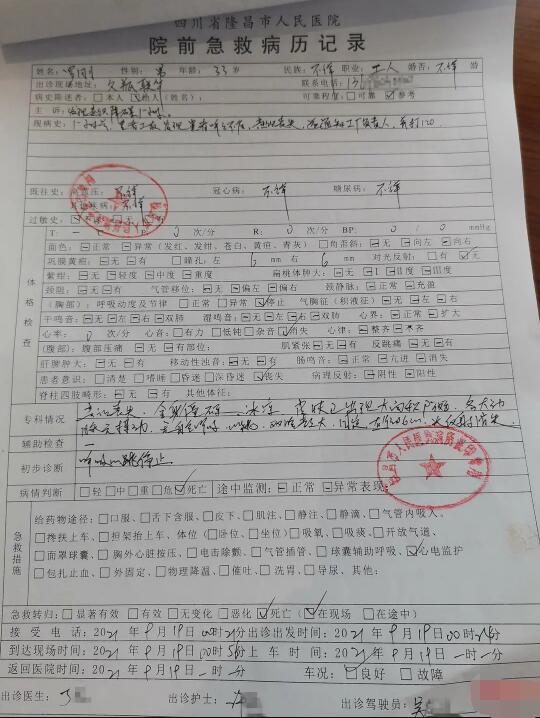 四川省隆昌市人民医院
院前急救病历记录
姓名: 性别: 男 年龄: 33岁 民族: 不详 职业: 工人 婚否: 不详 婚
出诊现场地址: 联系电话: 13
病史陈述者: □本人 ☑他人 (姓名): 可靠程度: □可靠 ☑参考
主 诉: 发现意识障碍 1+小时.
现病史: 1+小时前, 患者工友发现患者呼之不应, 意识丧失, 工厂负责人, 拨打120.
既往史: 高血压: 不详 冠心病: 不详 糖尿病: 不详
其他疾病: 不详
过敏史:
T: — ℃ P: 0 次/分 R: 0 次/分 BP: 0 / 0 mmHg
面色: 正常 异常 (发红、发绀、苍白、黄疸、青灰) 口角歪斜: 无 向左 向右
巩膜黄疸: 无 有 瞳孔: 左 6 mm 右 6 mm 对光反射: □有 ☑无
紫绀: 无 轻度 中度 重度 扁桃体肿大: 无 I II度 III度
颈阻: 无 有 气管移位: 无 偏左 偏右 颈静脉: 正常 充盈
(胸部): 呼吸动度及节律 □正常 □异常 ☑停止 气胸征 (积液征) 无 左 右
干鸣音: 无 左 右 双肺 湿鸣音: 无 左 右 双肺 心界: 正常 扩大
心率: 0 次/分 心音: □有力 □低钝 □杂音 ☑消失 心律: 整齐 不齐
(腹部): 腹部压痛 无 有部位: 肌紧张 无 有 反跳痛 无 有
肝脾肿大: 无 有 移动性浊音: 无 有 肠鸣音: 正常 亢进 消失
患者意识: □清楚 □嗜睡 □昏迷 □深昏迷 ☑丧失 病理反射: 阴性 阳性
脊柱四肢畸形: 无 有 其他体征:
体格检查
专科情况 意识丧失, 全身湿冷、
辅助检查 —
初步诊断 呼吸心跳停止
病情判断 □轻 □中 □重 □危 ☑死亡 途中监测: 正常 异常表现:
急救措施
给药物途径: □口服、□舌下含服、□皮下、□肌注、□静注、□静滴、□气管内吸入、
□搀扶上车、□担架抬上车、体位 (□卧位、□坐位) □吸氧、□吸痰、□开放气道、
□面罩球囊、□胸外心脏按压、□电击除颤、□气管插管、□球囊辅助呼吸、☑心电监护
□包扎止血、□外固定、□物理降温、□催吐、□洗胃、□导尿、其他:
急救转归: □显著有效 □有效 □无变化 □恶化 ☑死亡 (☑在现场 □在途中)
接受电话: 2021年9月19日00时21分 出诊出发时间: 2021年9月19日00时
到达现场时间: 2021年9月19日00时 上车时间: 2021年 — 月 — 日 — 分
返回医院时间: 2021年9月19日 — 时 — 分 车况: ☑良好 □故障
出诊医生: 出诊护士: 出诊驾驶员: 吴